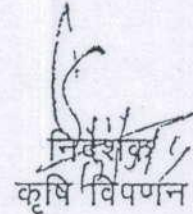 निदेशक
कृषि विपणन